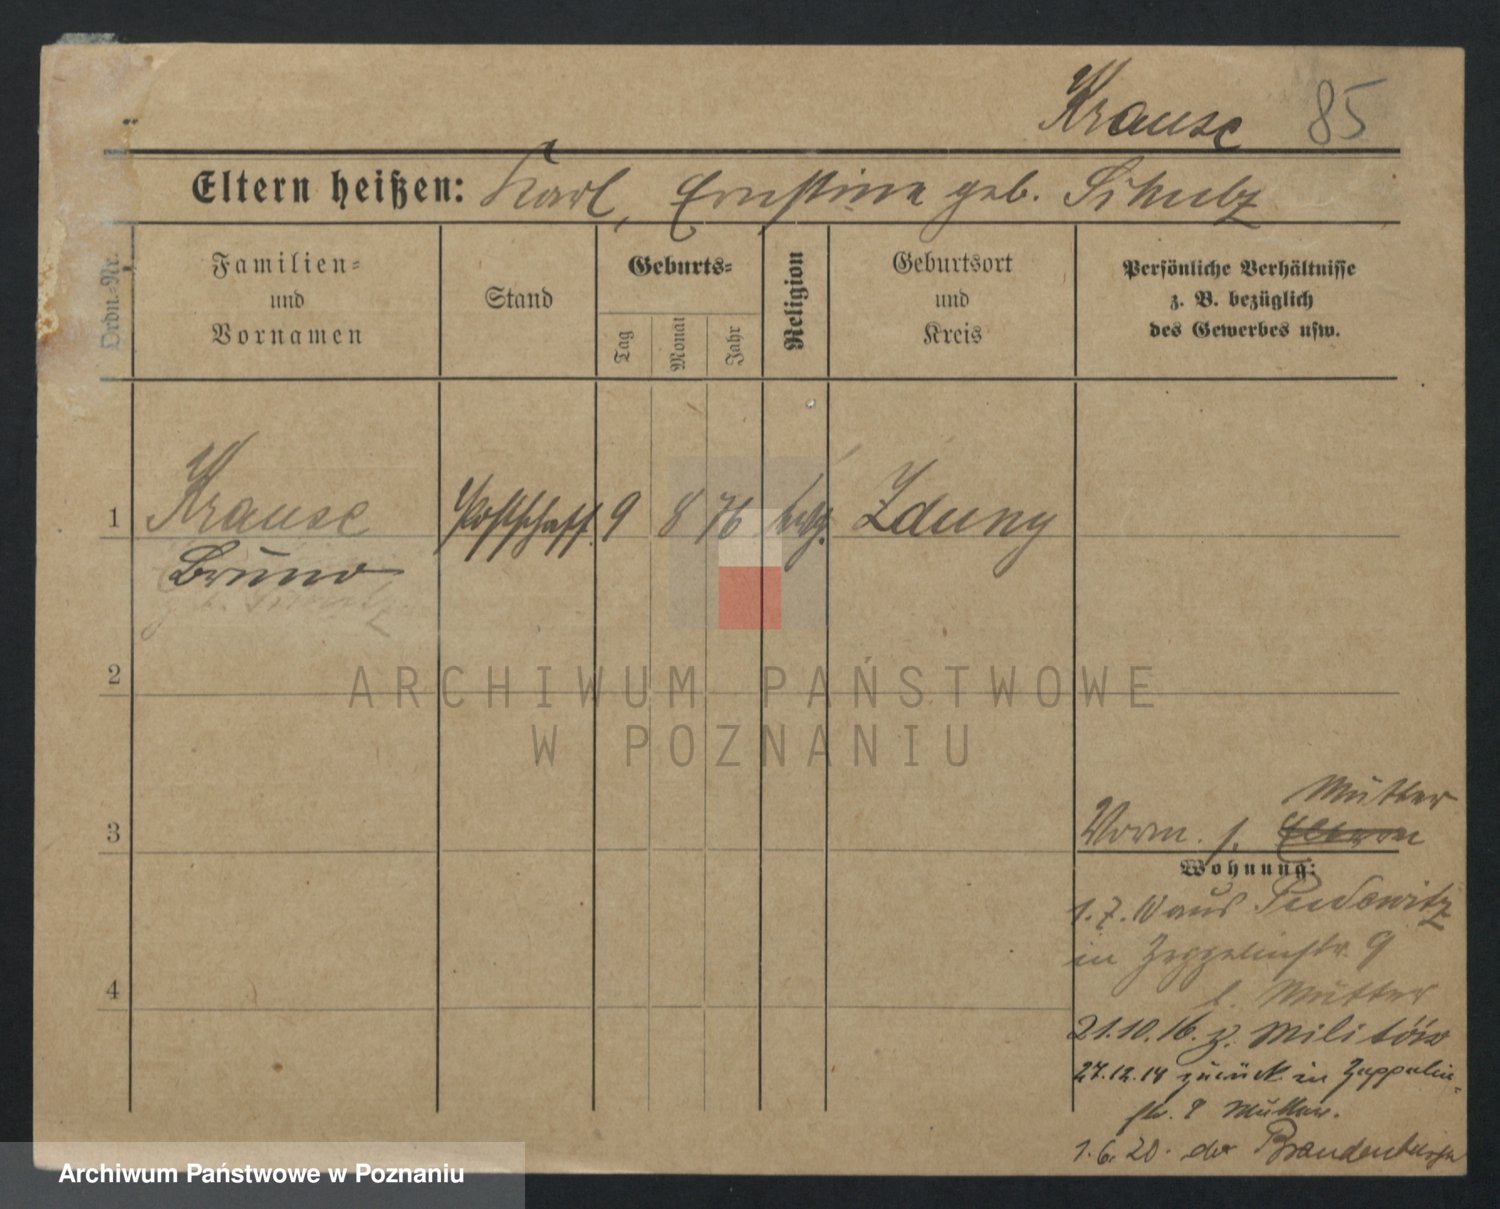 Krause 85
Eltern heißen: Karl, Ernstine geb. Schulz
Ordn.-Nr.
Familien-
und
Vornamen
Stand
Geburts-
Tag
Monat
Jahr
Religion
Geburtsort
und
Kreis
Persönliche Verhältnisse
z. B. bezüglich
des Gewerbes usw.
1 Krause Postschaff. 9 8 76 Zduny
Bruno
2
3
4
Mutter
Vorm. s. Eltern
Wohnung:
1.7. aus Pudewitz
in Zeppelinstr. 9
b. Mutter
21.10.16. z. Militär
27.12.18 zurück in Zeppelin-
str. 9 Mutter.
1.6.20.
ARCHIWUM PAŃSTWOWE
W POZNANIU
Archiwum Państwowe w Poznaniu